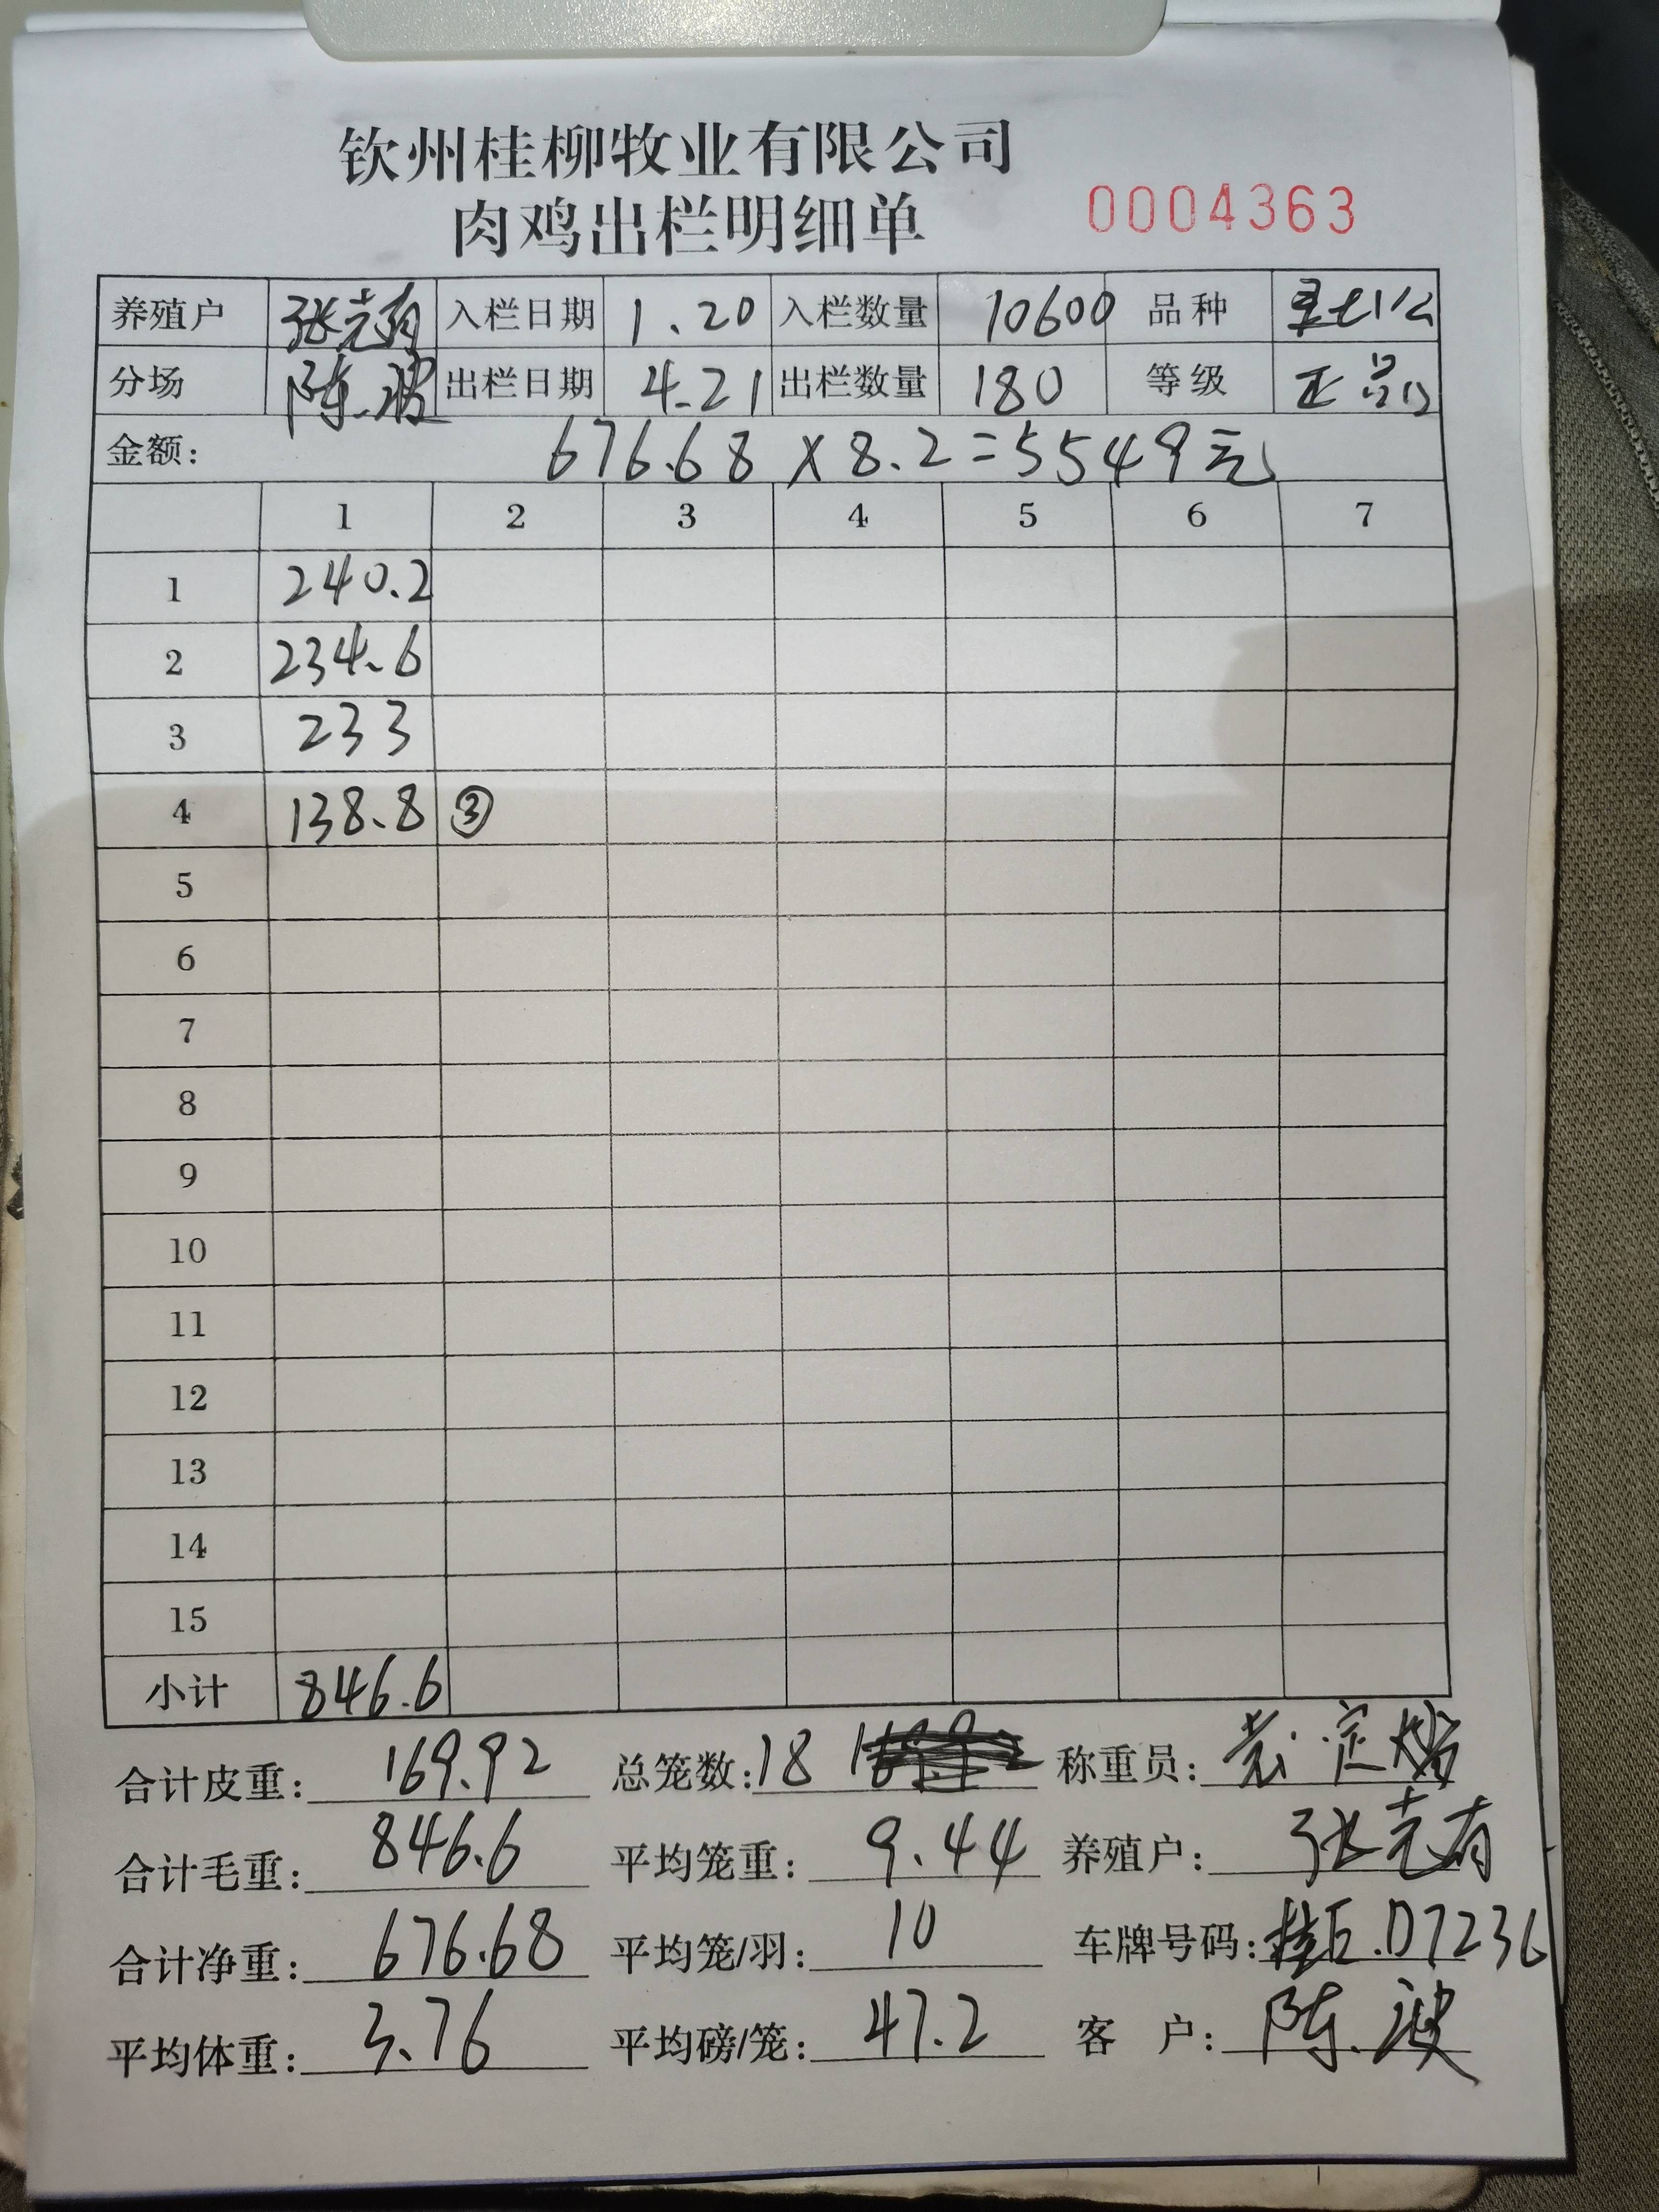 钦州桂柳牧业有限公司
肉鸡出栏明细单 0004363
养殖户 张克有 入栏日期 1.20 入栏数量 10600 品种
分场 陈波 出栏日期 4.21 出栏数量 180 等级 正品
金额: 676.68 x 8.2 = 5549元
1 2 3 4 5 6 7
1 240.2
2 234.6
3 233
4 138.8 ③
5
6
7
8
9
10
11
12
13
14
15
小计 846.6
合计皮重: 169.92 总笼数: 18 称重员:
合计毛重: 846.6 平均笼重: 9.44 养殖户: 张克有
合计净重: 676.68 平均笼/羽: 10 车牌号码: D7236
平均体重: 3.76 平均磅/笼: 47.2 客户: 陈波